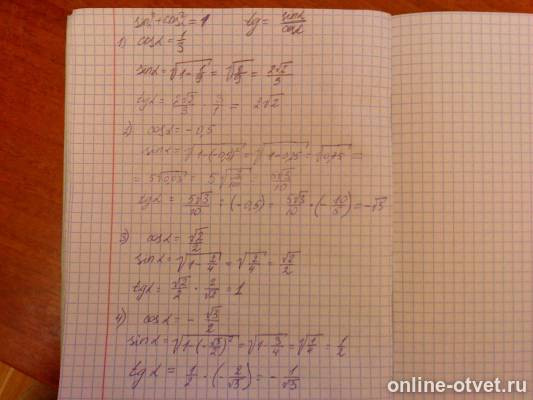 sin²+cos²=1 tg = sinα/cosα
1) cosα = 1/3
sinα = √(1 - 1/9) = √(8/9) = 2√2/3
tgα = 2√2/3 · 3/1 = 2√2
2) cosα = -0,5
sinα = √(1-(-0,5)²) = √(1-0,25) = √0,75 =
= 5√0,03 = 5√3/10 5√3/10
tgα = 5√3/10 : (-0,5) = 5√3/10 · (-10/5) = -√3
3) cosα = √2/2
sinα = √(1 - 2/4) = √(2/4) = √2/2
tgα = √2/2 · 2/√2 = 1
4) cosα = - √3/2
sinα = √(1-(-√3/2)²) = √(1 - 3/4) = √(1/4) = 1/2
tgα = 1/2 · (-2/√3) = - 1/√3
online-otvet.ru